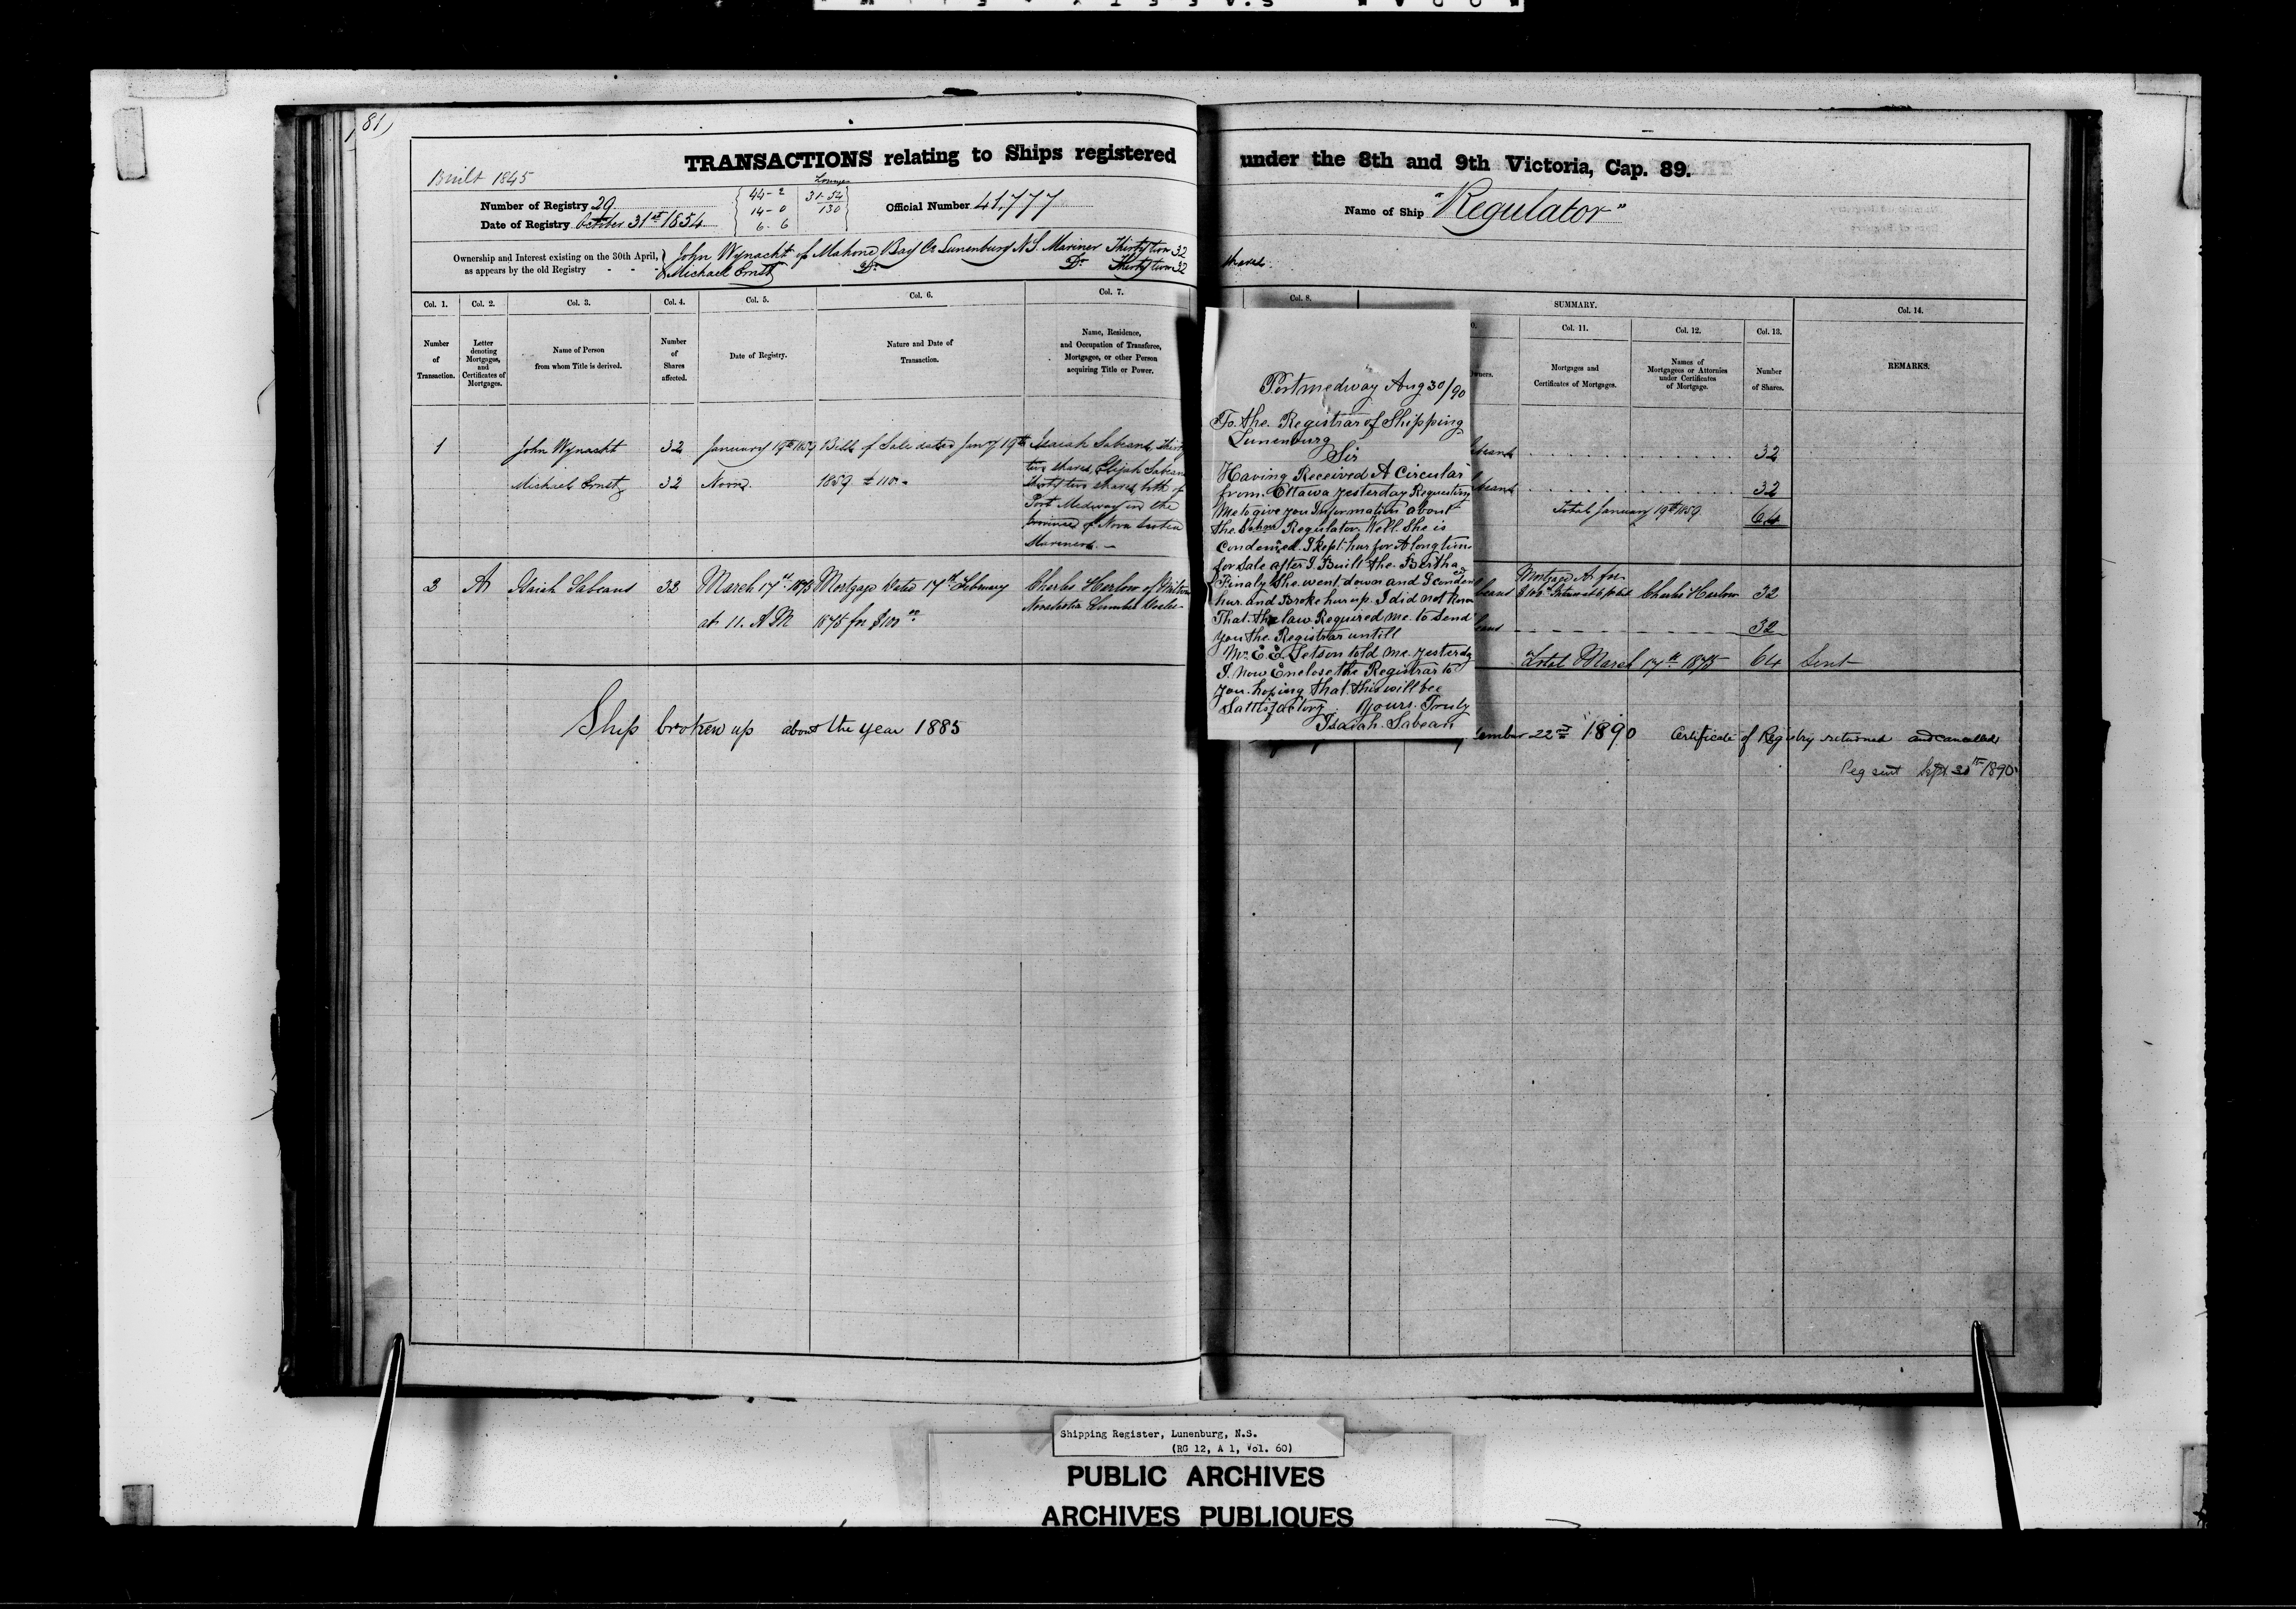 81)
TRANSACTIONS relating to Ships registered under the 8th and 9th Victoria, Cap. 89.
Built 1845
Number of Registry 29
Date of Registry October 31st 1854
44-2
14-0
6-6
31-54
130
Official Number 41,777
Name of Ship "Regulator"
Ownership and Interest existing on the 30th April,
as appears by the old Registry - - -
John Wynacht of Mahone Bay Co Lunenburg N.S. Mariner Thirty two 32
& Michael Ernst Do Do Thirty two 32 shares.
Col. 1. Col. 2. Col. 3. Col. 4. Col. 5. Col. 6. Col. 7. Col. 8. SUMMARY. Col. 14.
Col. 11. Col. 12. Col. 13.
Number of Transaction.
Letter denoting Mortgages, and Certificates of Mortgages.
Name of Person from whom Title is derived.
Number of Shares affected.
Date of Registry.
Nature and Date of Transaction.
Name, Residence, and Occupation of Transferee, Mortgagee, or other Person acquiring Title or Power.
Mortgages and Certificates of Mortgages.
Names of Mortgagees or Attornies under Certificates of Mortgage.
Number of Shares.
REMARKS.
1 John Wynacht 32 January 19th 1859 Bill of Sale dated Jany 19th Isaiah Sabeans, Thirty
Michael Ernst 32 Noon. 1859 £110- two shares, Elijah Sabeans
Thirty two shares, both of
Port Medway in the
Province of Nova Scotia
Mariners. -
32
32
Total January 19th 1859 64
2 A Isaiah Sabeans 32 March 17th 1875 Mortgage dated 17th February Charles Harlow of
at 11. A M 1875 for $100 Nova Scotia Lumber
Mortgage A for
$100 Charles Harlow 32
32
Total March 17th 1875 64 Sent
Ship broken up about the year 1885
22nd 1890 Certificate of Registry returned and cancelled
Reg sent Sept 30th 1890
Portmedway Aug 30/90
To. the. Registrar of Shipping
Lunenburg
Sir
Having Received A Circular
from. Ottawa yesterday Requesting
Me to give you Information about
the. Schnr Regulator. Well. She is
Condemed. I kept hur for A long time
for Sale after I Built the. Bertha
Finaly She. went. down and I condemed
hur. and Broke hur up. I did not Know
That. the law Required me. to Send
you the. Registrar untill
Mr. E. E. Letson told me. yesterdy
I. Now Enclose the Registrar to
you. hoping that. this will be
Sattisfactory. Yours. Truly
Isaiah. Sabean
Shipping Register, Lunenburg, N.S.
(RG 12, A 1, Vol. 60)
PUBLIC ARCHIVES
ARCHIVES PUBLIQUES